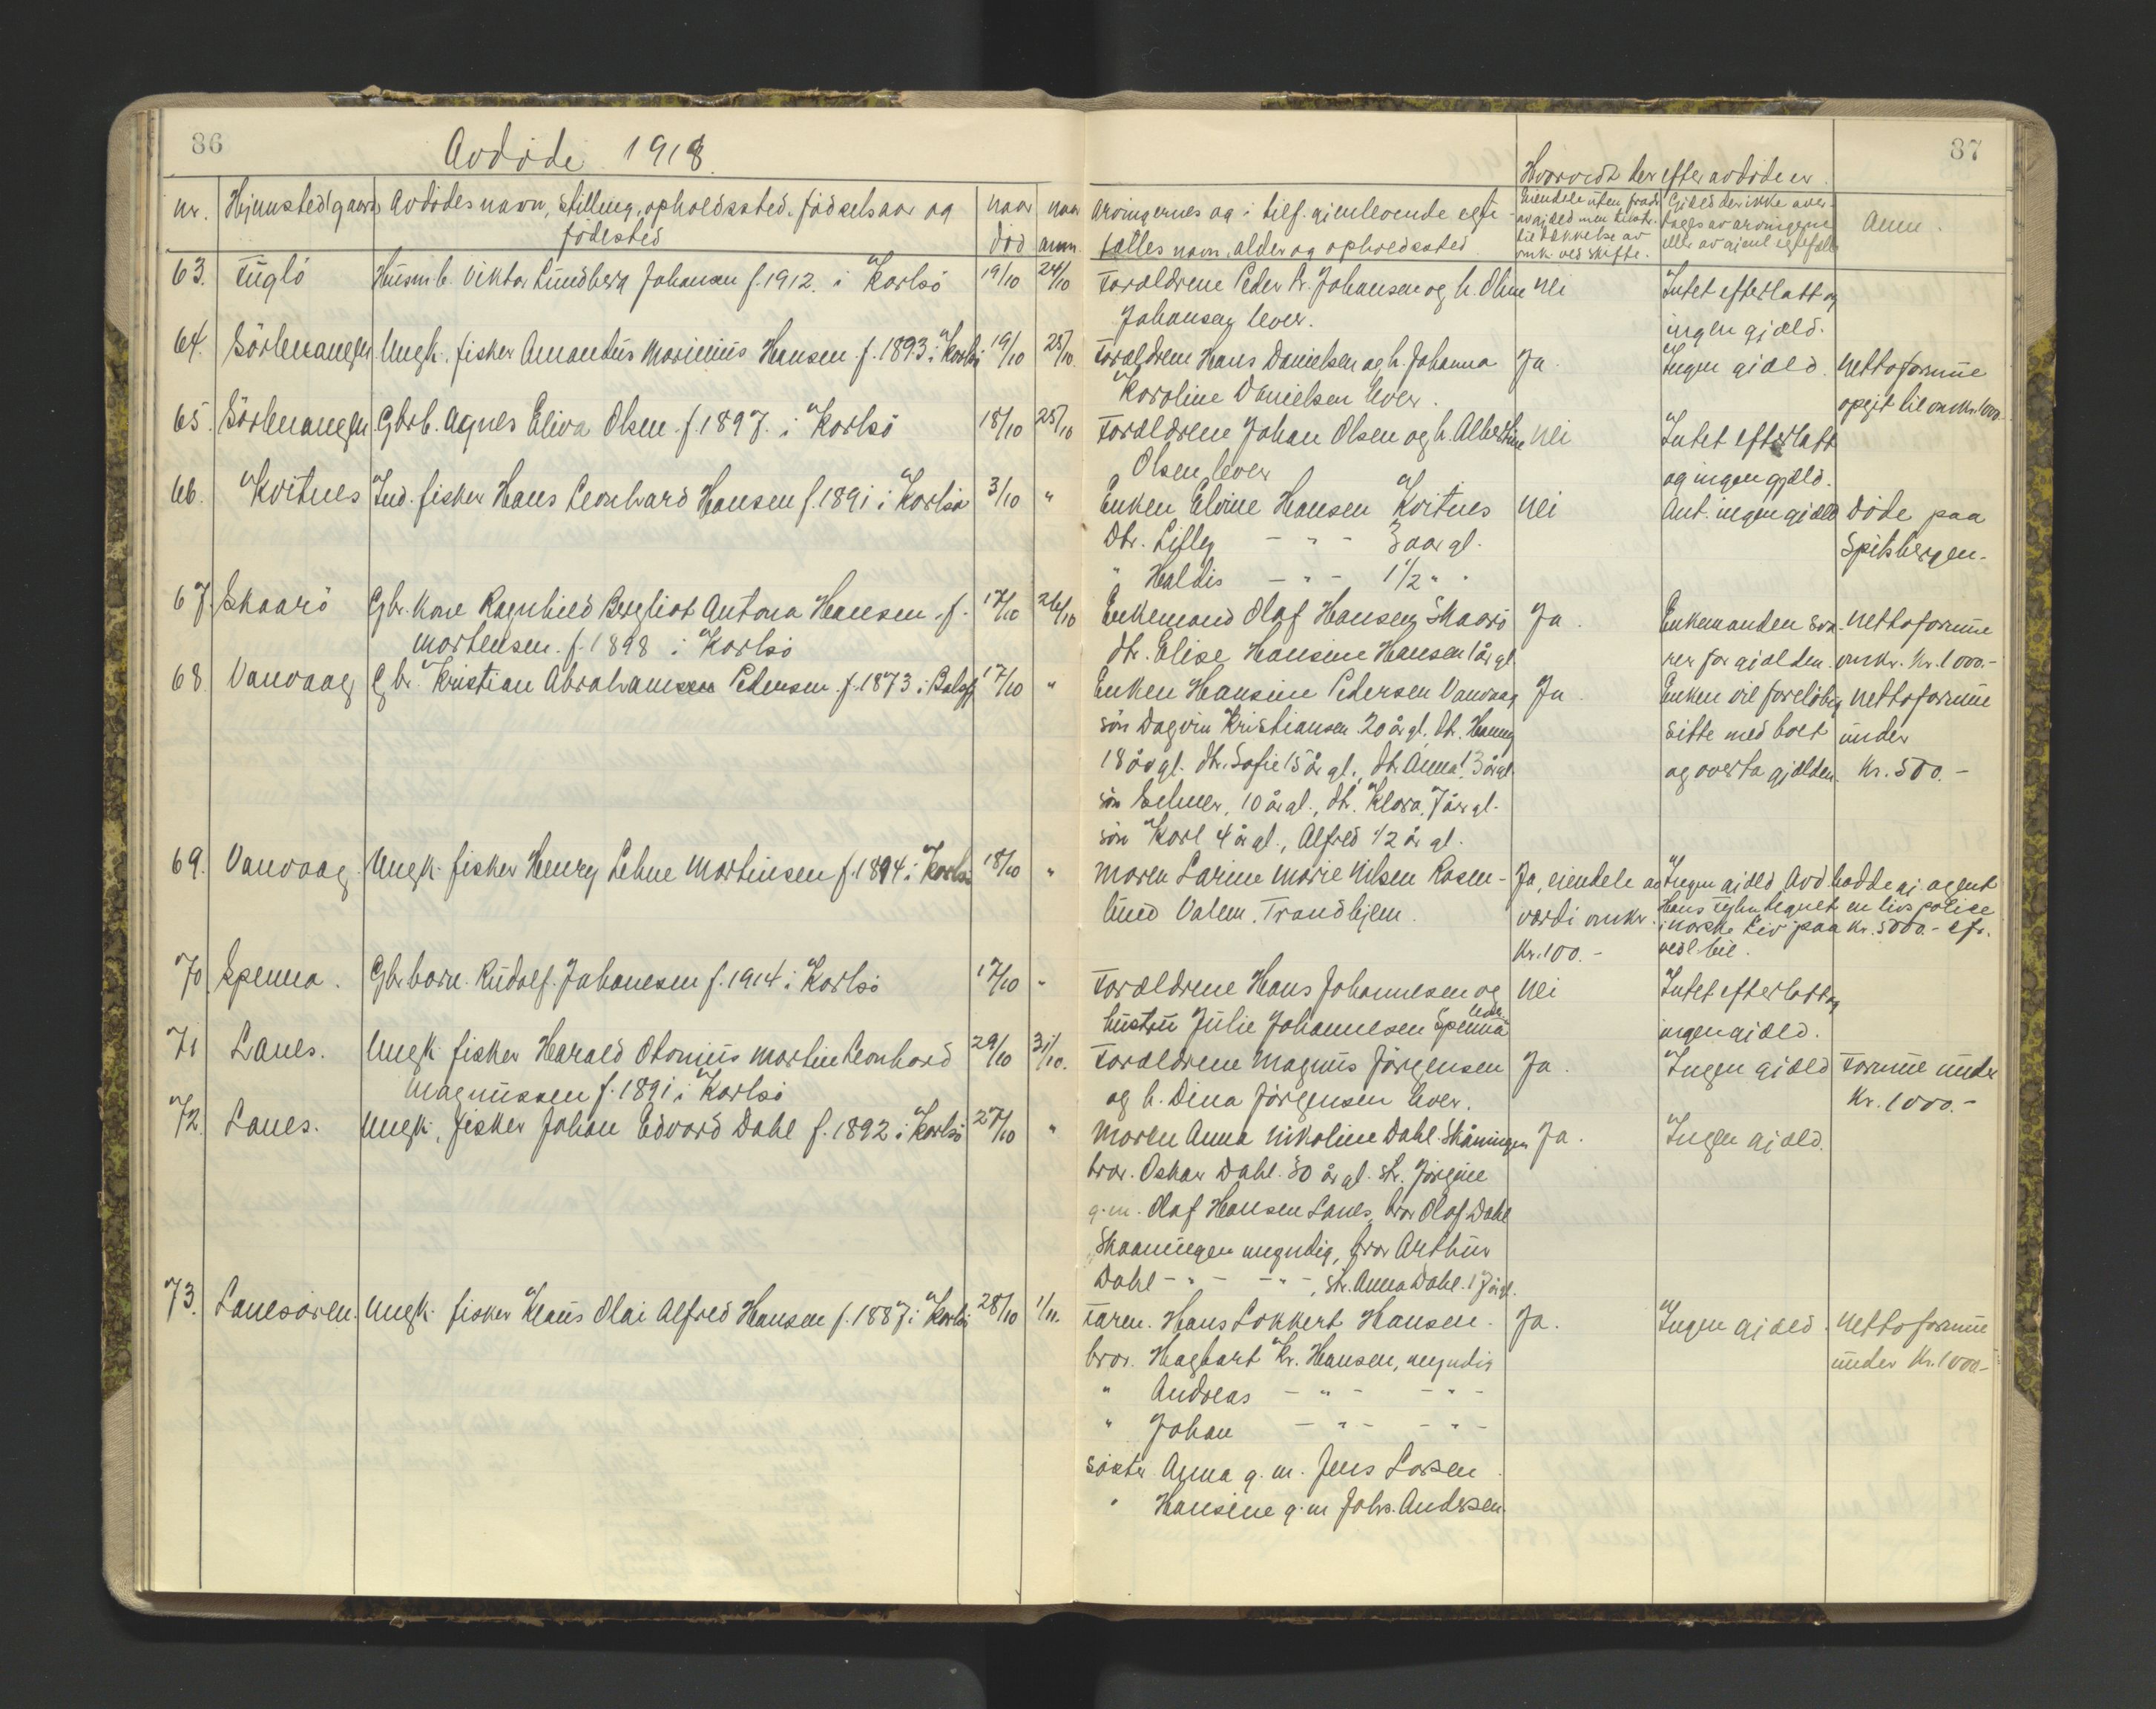 86
Avdøde 1918.
nr. Hjemsted (gaard) Avdødes navn, stilling, opholdssted, fødselsaar og fødested naar død naar anm.
63. Fuglö Husm.b. Viktor Lundberg Johansen f. 1912. i Karlsö 19/10 24/10
64. Sörlenangen Ungk. fisker Amandus Marinius Hansen f. 1893 i Karlsö 19/10 25/10.
65. Sörlenangen Gbr.b. Agnes Eliva Olsen f. 1897. i Karlsö 18/10 25/10
66. Kvitnes Ind. fisker Hans Leonhard Hansen f. 1891 i Karlsö 3/10 "
67. Skaarö Gbr. kone Ragnhild Bergliot Antona Hansen f. 17/10 26/10
Mortensen. f. 1898 i Karlsö
68 Vanvaag Gbr. Kristian Abrahamsen Pedersen. f. 1873 i Balsfj. 17/10 "
69. Vanvaag Ungk. fisker Henry Lehne Martinsen f. 1894 i Karlsö 18/10 "
70. Spenna. Gbr.barn. Rudolf Johanesen f. 1914 i Karlsö 17/10 "
71 Lanes. Ungk. fisker Harald Otonius Martin Leonhard 29/10 31/10.
Magnussen f. 1891 i Karlsö
72. Lanes. Ungk. fisker Johan Edvard Dahl f. 1892 i Karlsö 27/10 "
73. Lanesören. Ungk. fisker Klaus Olai Alfred Hansen f. 1887 i Karlsö 28/10 1/11.
87
Hvorvidt der efter avdøde er
Arvingernes og i tilf. gjenlevende egte-
fælles navn, alder og opholdssted
Eiendele uten fradr.
av gjæld men tilstr.
til dækkelse av
omk. ved skifte.
Gjæld der ikke over-
tages av arvingerne
eller av gjenl. egtefælle
Anm.
Forældrene Peder Kr. Johansen og h. Oline nei Intet efterlatt og
Johansen lever. ingen gjæld.
Forældrene Hans Danielsen og h. Johanna Ja. Ingen gjæld. Nettoformue
Karoline Danielsen lever. opgit til omkr. 1000.-
Forældrene Johan Olsen og h. Albertine nei Intet efterlatt
Olsen lever og ingen gjæld.
Enken Elvine Hansen Kvitnes nei Ant. ingen gjæld Döde paa
Dtr. Lilly - " - 3 aar gl. Spitsbergen.
" Haldis - " - 1 1/2 " "
Enkemand Olaf Hansen, Skaarö Ja. Enkemanden sva- Nettoformue
dtr. Elise Hansine Hansen 1 år gl. rer for gjælden. omkr. Kr. 1000.-
Enken Hansine Pedersen Vanvaag Ja. Enken vil foreløbig Nettoformue
sön Dagvin Kristiansen 20 år gl., dtr. Hanny sitte med boet under
18 år gl. dtr. Sofie 15 år gl., dtr. Anna 13 år gl. og overta gjælden. Kr. 500.-
sön Selmer, 10 år gl., dtr. Klara, 7 år gl.
sön Karl 4 år gl., Alfred 1/2 år gl.
Moren Larine Marie Nilsen Rosen- Ja, eiendele av Ingen gjæld. Avd hadde gj. agent
lund Valem. Trondhjem. værdi omkr. Hans tegnet en livspolise
Kr. 100.- i norske Liv paa Kr. 5000.- efr.
vedl. bil.
Forældrene Hans Johannesen og nei Intet efterlatt og
hustru Julie Johannesen Spenna lever ingen gjæld.
Forældrene Magnus Jörgensen Ja. Ingen gjæld Formue under
og h. Dina Jörgensen lever. Kr. 1000.-
Moren Anna Nikoline Dahl. Skåningen Ja. Ingen gjæld.
bror. Oskar Dahl. 30 år gl. str. Jörgine
g.m. Olaf Hansen Lanes, bror Olaf Dahl
Skaaningen umyndig, bror Arthur
Dahl - " - - " -, str. Anna Dahl. 17 år gl.
Faren. Hans Lokkert Hansen. Ja. Ingen gjæld. Nettoformue
bror. Hagbart Kr. Hansen, myndig under Kr. 1000.-
" Andreas - " - - " -
" Johan - " - - " -
söster Anna g.m. Jens Larsen
" Hansine g.m Johs. Andersen.